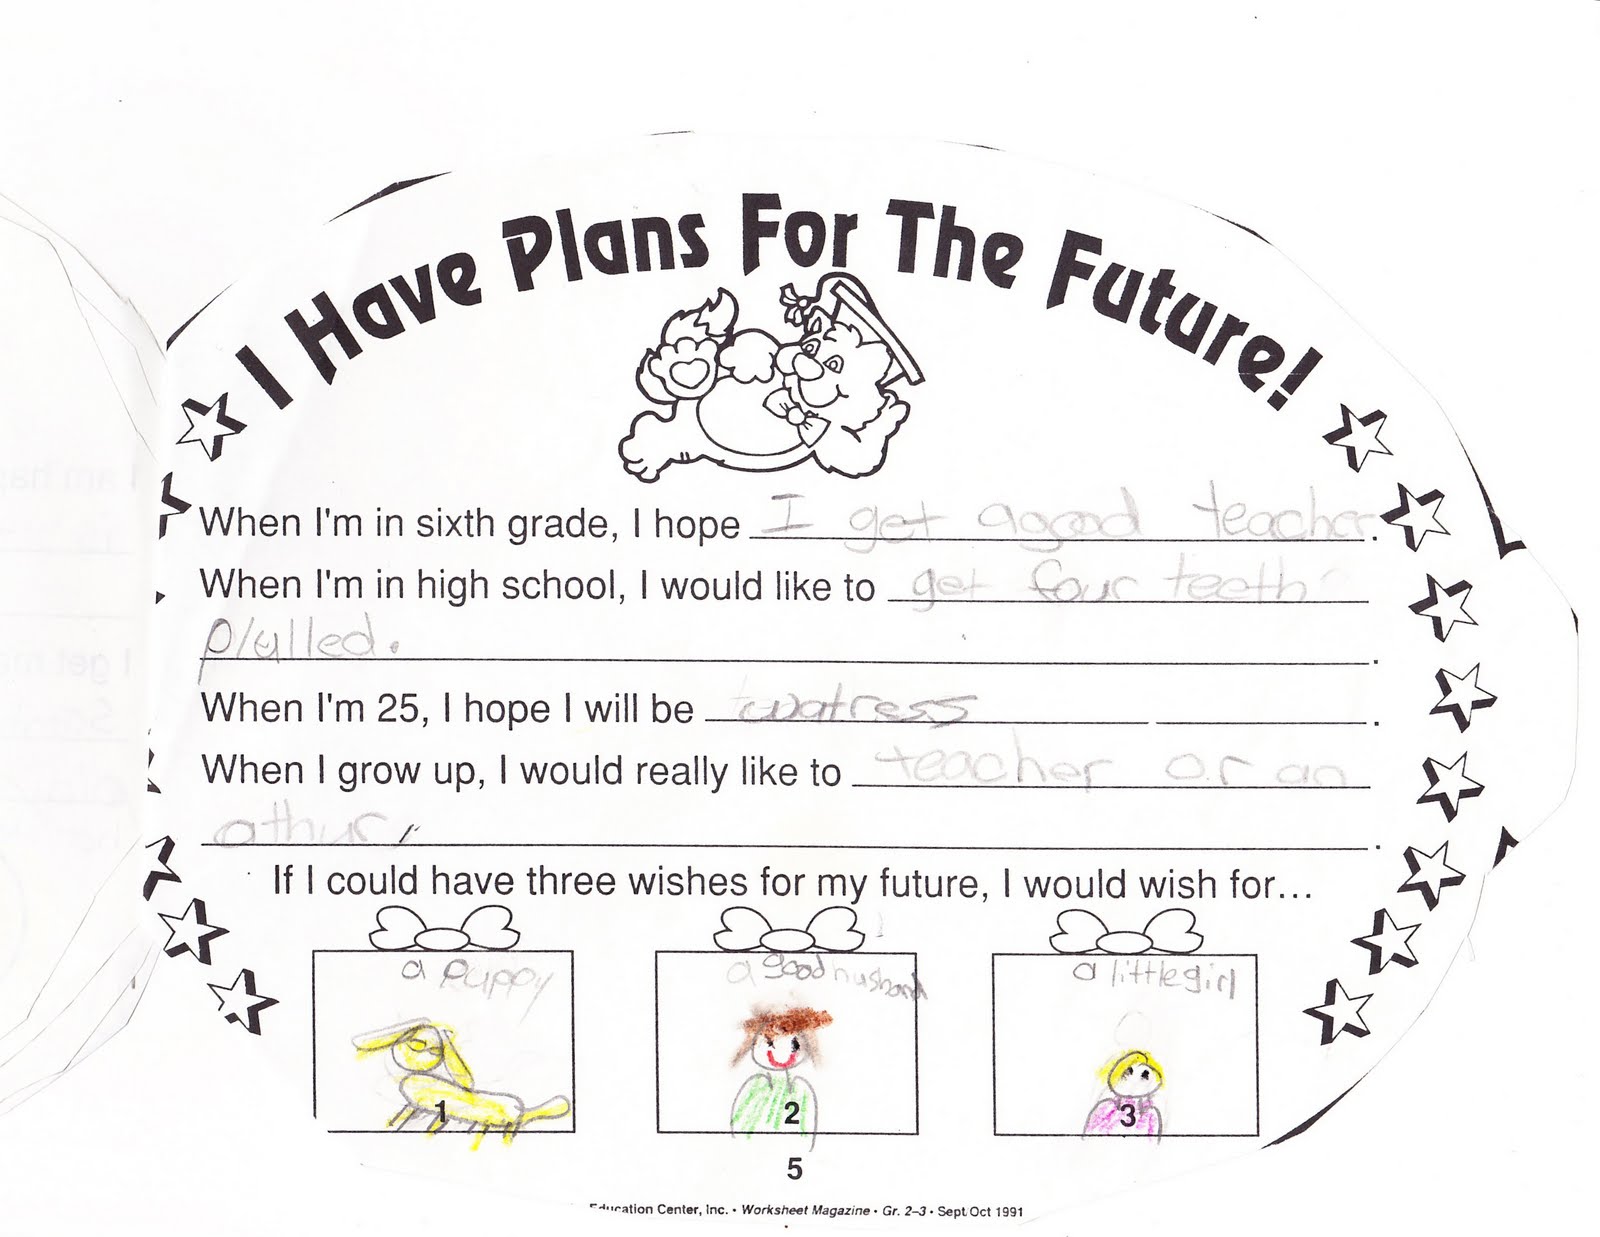 I Have Plans For The Future!
When I'm in sixth grade, I hope I get a good teacher.
When I'm in high school, I would like to get four teeth
plulled.
When I'm 25, I hope I will be watress.
When I grow up, I would really like to teacher or an
athur.
If I could have three wishes for my future, I would wish for...
a puppy a good husband a little girl
1 2 3
5
Education Center, Inc. • Worksheet Magazine • Gr. 2–3 • Sept/Oct 1991